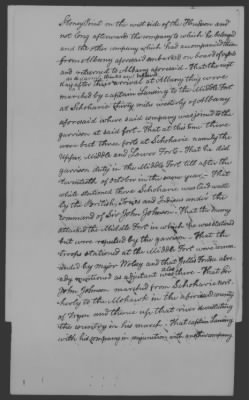 Stoney Point on the west side of the Hudson and
not long afterwards the company to which he belonged
and the other company which had accompanied them
from Albany aforesaid embarked on board of sloops
and returned to Albany aforesaid. That the next
day after their arrival at Albany they were
marched by captain Lansing to the Middle Fort
at Schoharie thirty miles westerly of Albany
aforesaid where said company was joined to the
garrison at said fort. That at this time there
were but three forts at Schoharie namely the
Upper, Middle and Lower Forts. That he did
garrison duty in the Middle Fort till after the
twentieth of october in the same year. That
while stationed there Schoharie was laid waste
by the British, Tories and Indians under the
command of Sir John Johnson. That the enemy
attacked the Middle Fort in which he was stationed
but were repulsed by the garrison. That the
troops stationed at the Middle Fort were comman
ded by major Wolsey and that Yelles Fonda alrea
dy mentioned as adjutant was also there. That Sir
John Johnson marched from Schoharie nort
herly to the Mohawk in the aforesaid county
of Tryon and thence up that river devastating
the country in his march. That captain Lansing
with his company in conjunction with another company